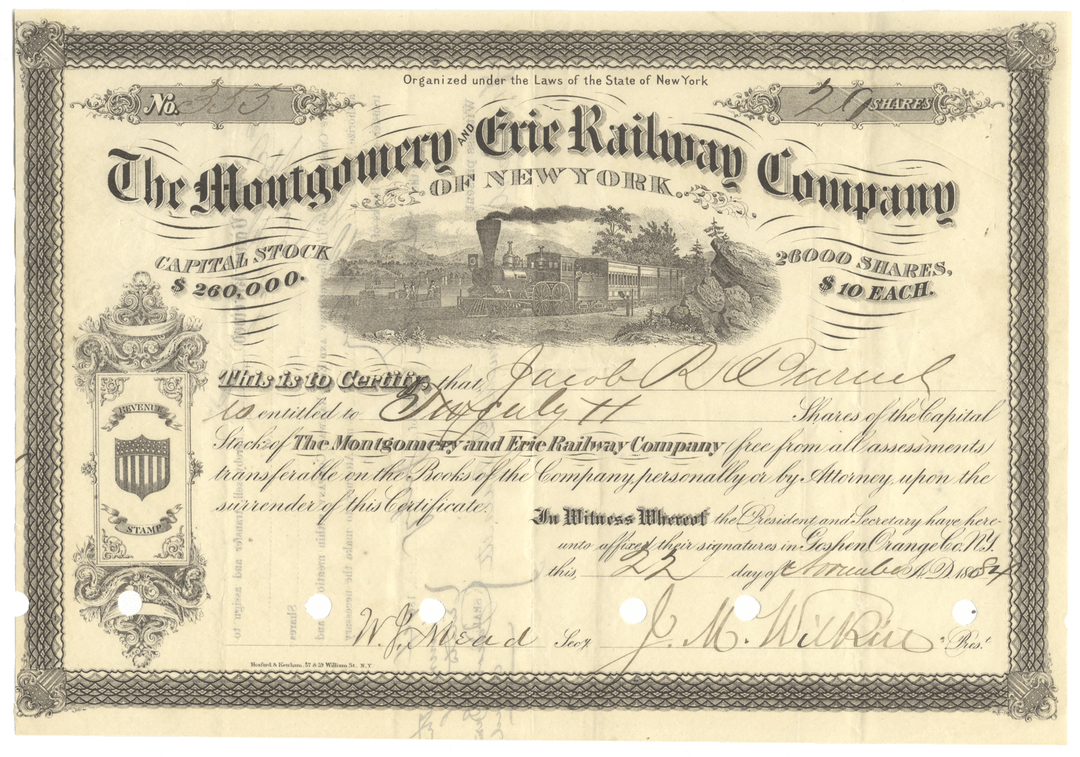 Organized under the Laws of the State of New York
No. 355
29 SHARES
The Montgomery AND Erie Railway Company
OF NEW YORK.
CAPITAL STOCK
$260,000.
26000 SHARES,
$10 EACH.
This is to Certify, that Jacob R
is entitled to Shares of the Capital
Stock of The Montgomery and Erie Railway Company (free from all assessments)
transferable on the Books of the Company, personally or by Attorney, upon the
surrender of this Certificate.
REVENUE
STAMP
In Witness Whereof the President and Secretary have here-
unto affixed their signatures in Goshen Orange Co. N.Y.
this, 22 day of November A.D. 18
W. J. Mead Secy.
J. M. Wilkin Pres.t
Hosford & Ketcham, 57 & 59 William St. N.Y.